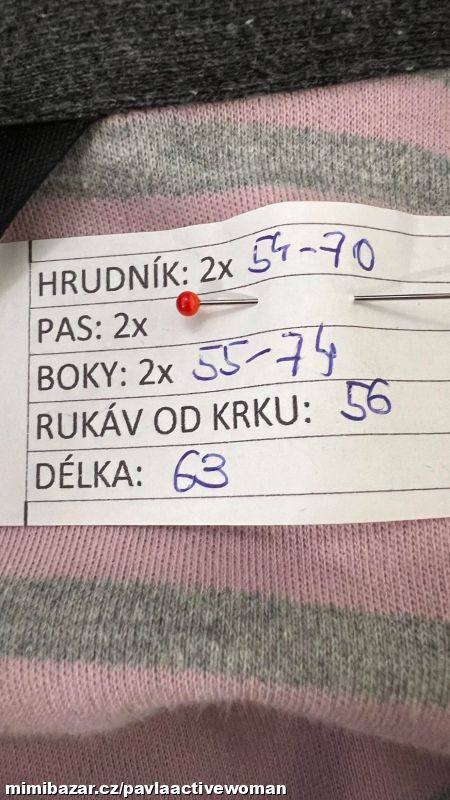 HRUDNÍK: 2x 54-70
PAS: 2x
BOKY: 2x 55-74
RUKÁV OD KRKU: 56
DÉLKA: 63
mimibazar.cz/pavlaactivewoman